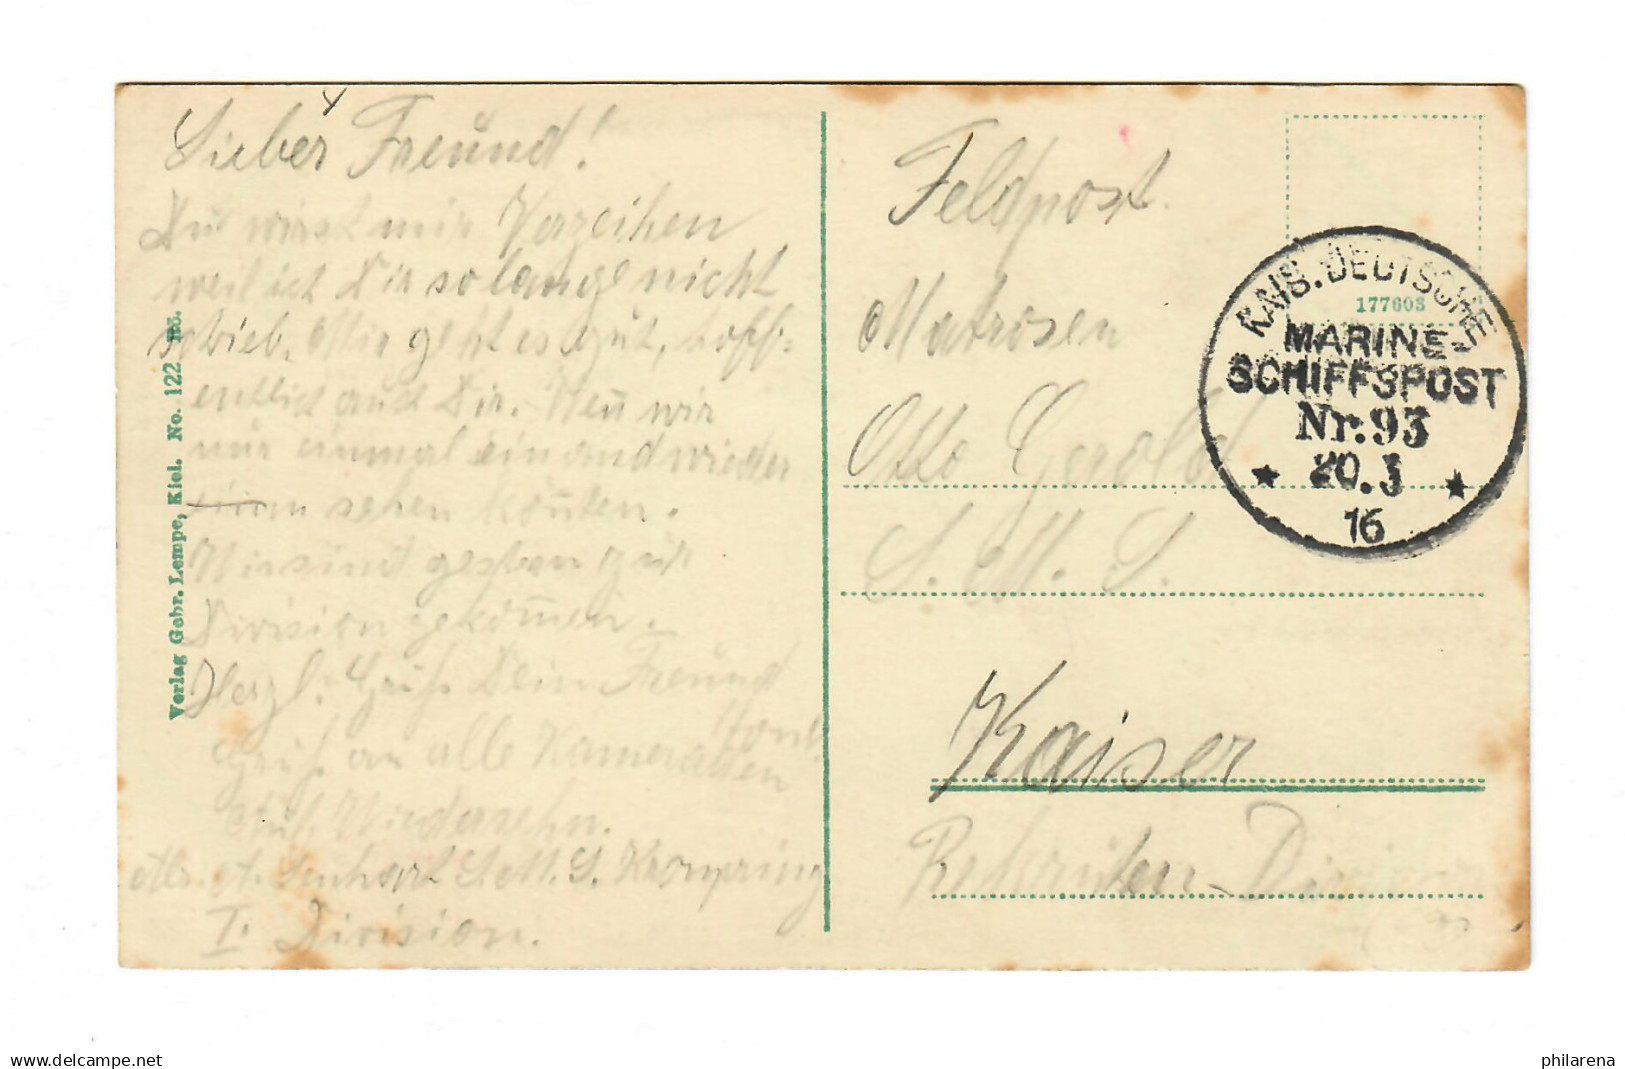 Lieber Freund!
Du wirst mir Verzeihen
weil ich Dir so lange nicht
schrieb. Mir geht es gut, hoff-
endlich auch Dir. Wen̄ wir
nur einmal einander wieder
sehen kön̄ten.
Wir sind gestern zur
Division gekom̄en.
Herzl. Gruß Dein Freund
Gruß an alle Kameraden
Auf Wiedersehn.
A. Lenhart S.M.S. Kronprinz
I. Division.
Verlag Gebr. Lempe, Kiel. No. 122
Feldpost
Matrosen
Otto Gerold
S. M. S.
Kaiser
Rekruten-Division
177603
KAIS. DEUTSCHE
MARINE-
SCHIFFSPOST
Nr. 93
20.3
16
delcampe.net
philarena